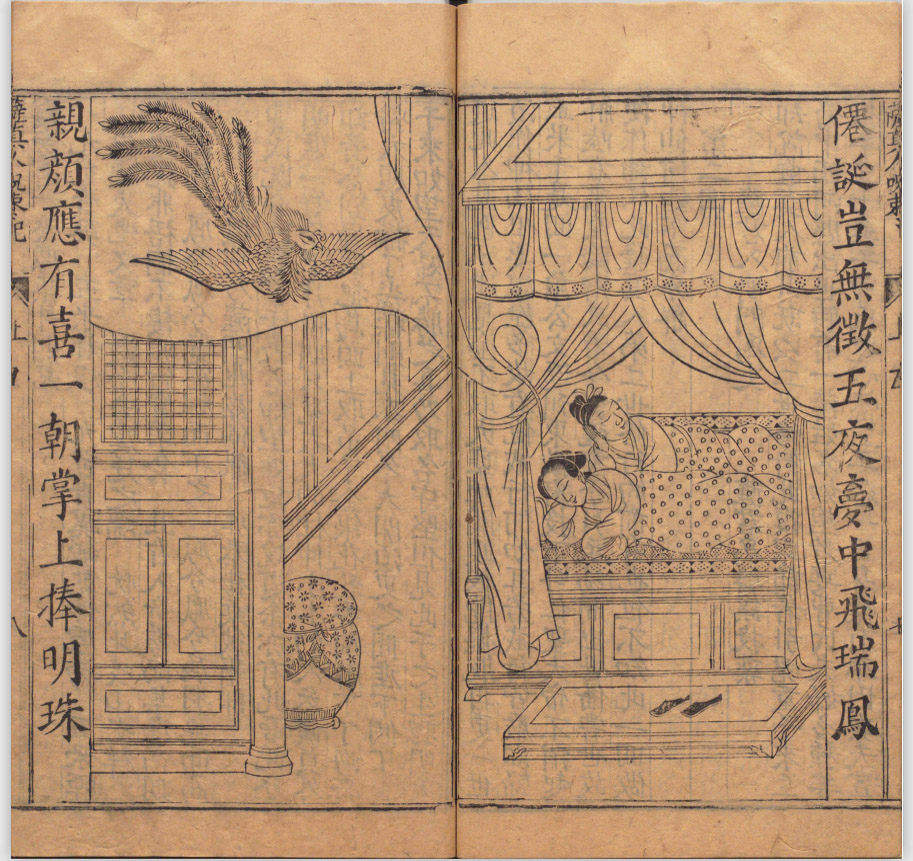 僊誕豈無徵五夜夢中飛瑞鳳
親顔應有喜一朝掌上捧明珠